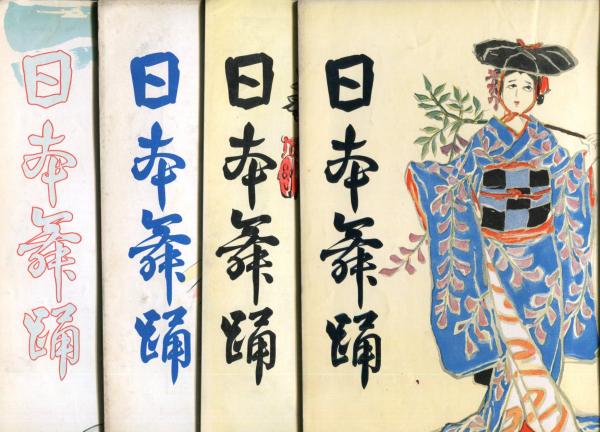 日本舞踊
日本舞踊
日本舞踊
日本舞踊